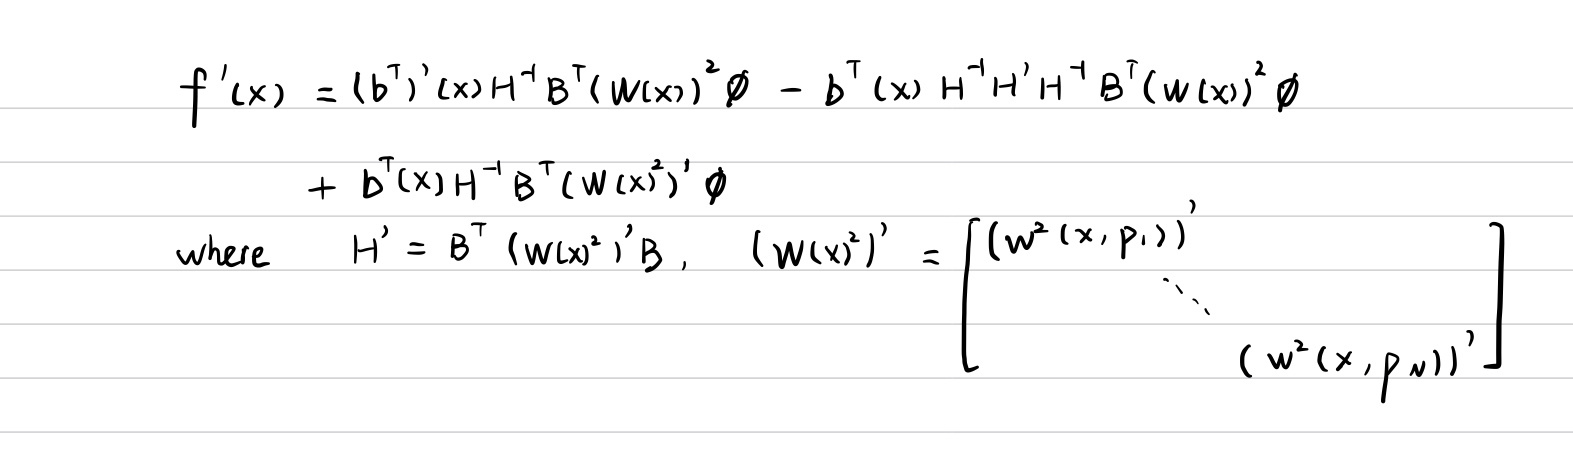 f'(x) = (bᵀ)'(x) H⁻¹ Bᵀ (W(x))² ϕ − bᵀ(x) H⁻¹ H' H⁻¹ Bᵀ (W(x))² ϕ
+ bᵀ(x) H⁻¹ Bᵀ (W(x)²)' ϕ
where H' = Bᵀ (W(x)²)' B, (W(x)²)' = [ (w²(x, p₁))'
⋱
(w²(x, p_N))' ]